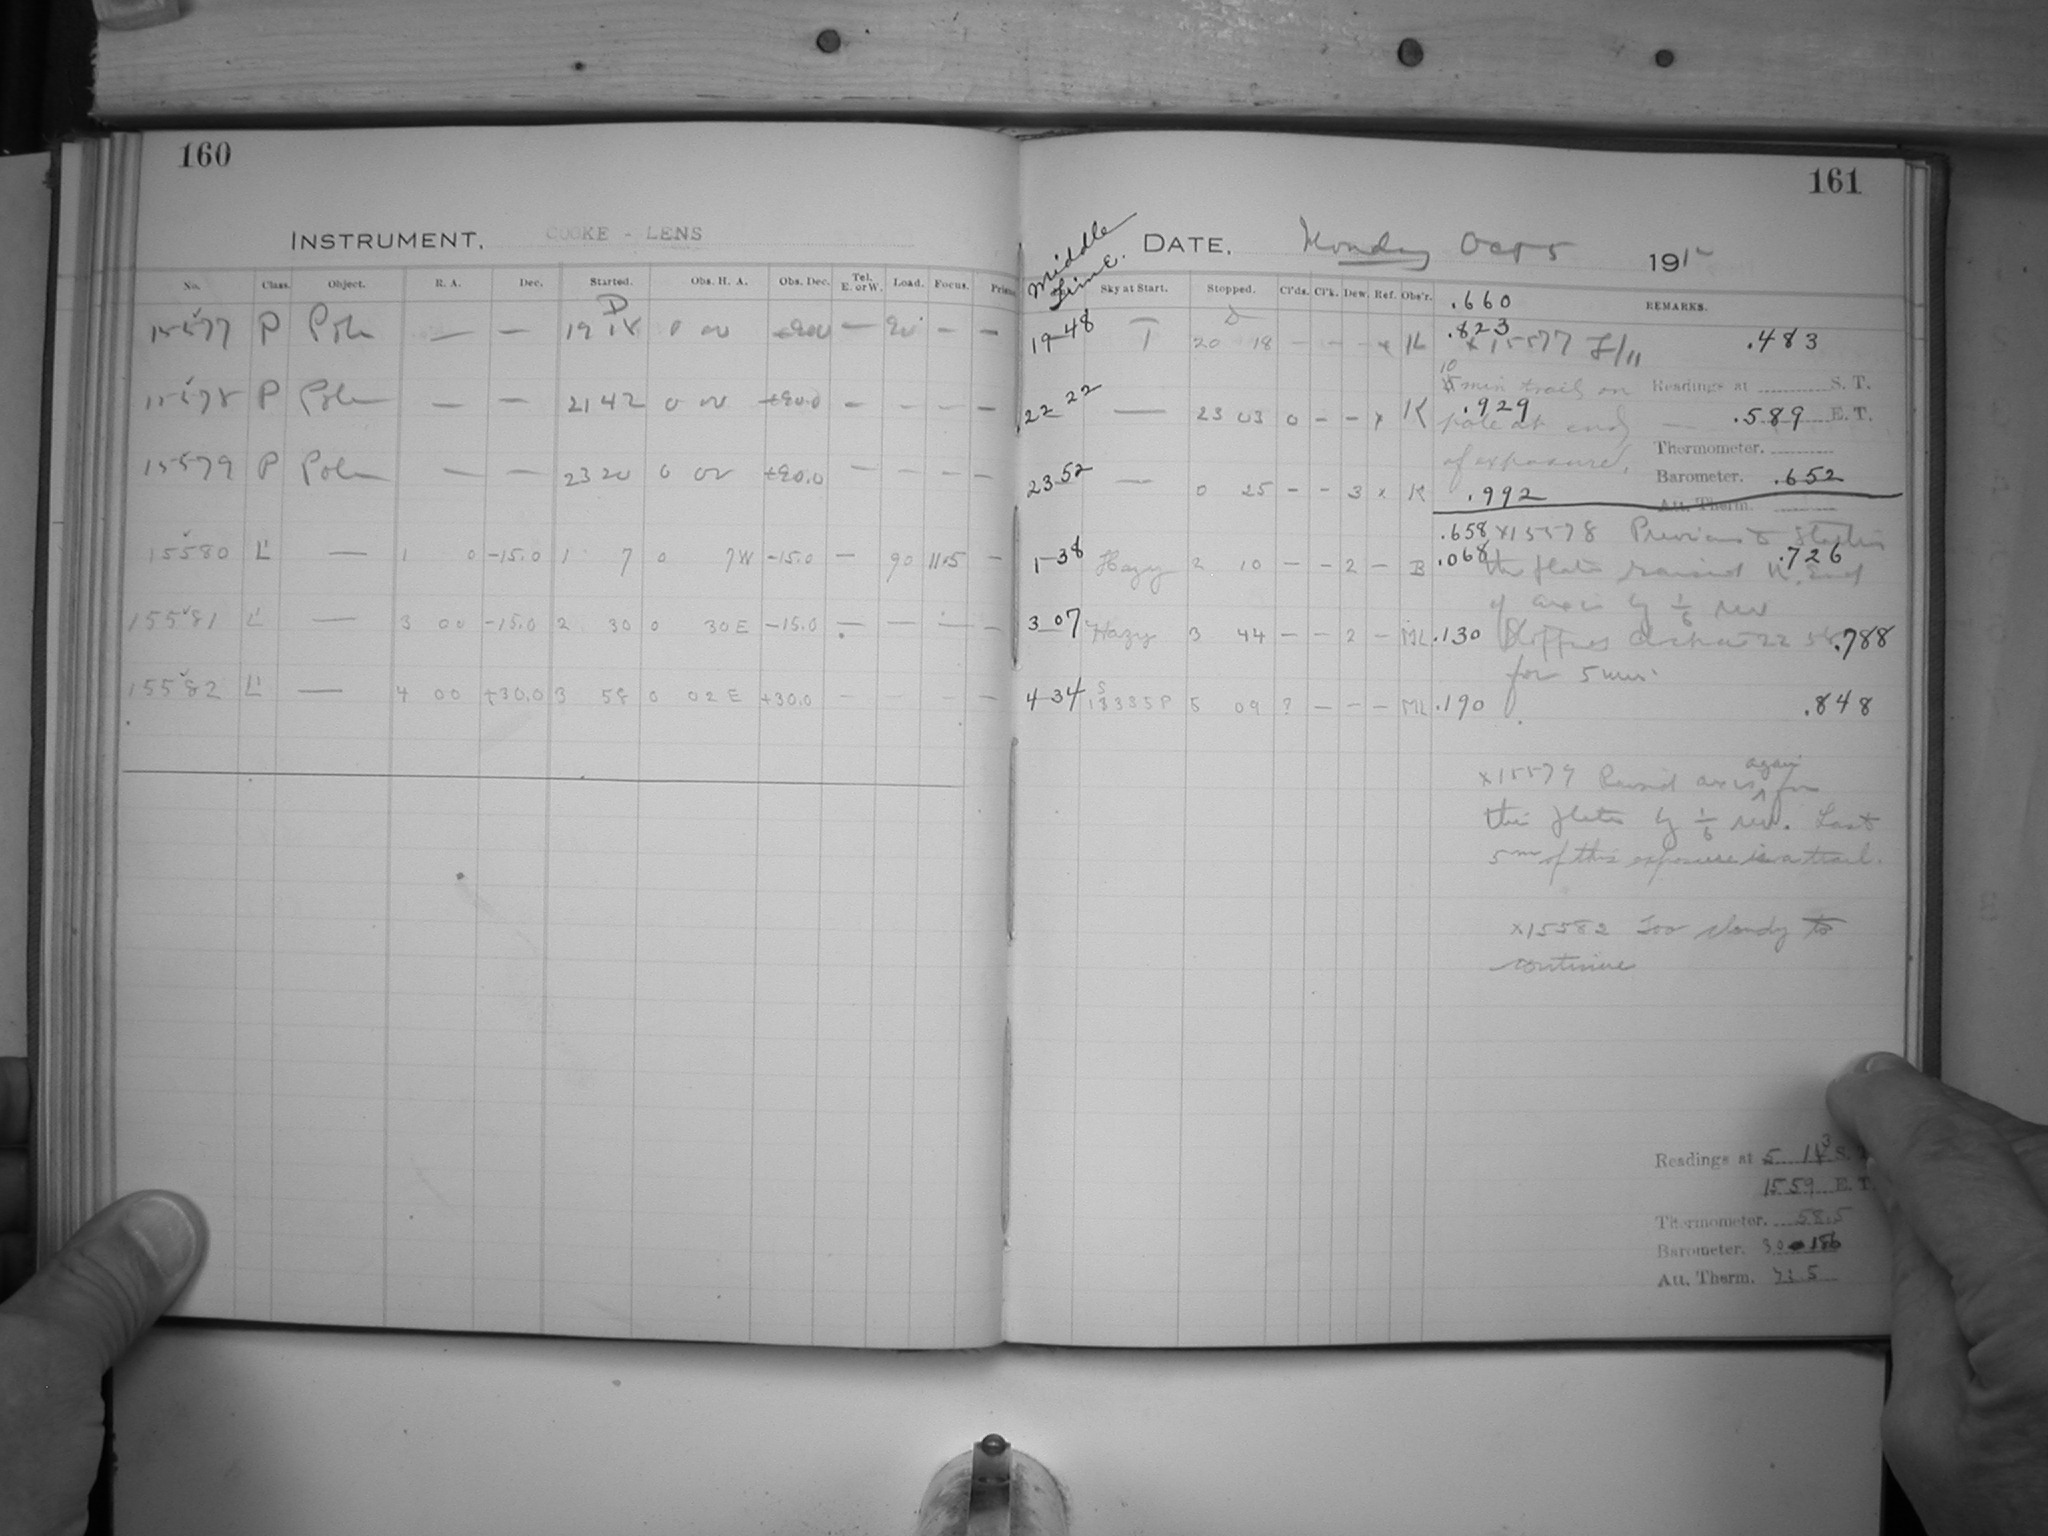 160
INSTRUMENT. COOKE - LENS
No. Class. Object. R. A. Dec. Started. Obs. H. A. Obs. Dec. Tel. E. or W. Load. Focus.
D
15577 P Pole — — 19 18 0 00 +90.0 — 90 — —
15578 P Pole — — 21 42 0 00 +90.0 — — — —
15579 P Pole — — 23 20 0 00 +90.0 — — — —
15580 L' — 1 0 -15.0 1 7 0 7W -15.0 — 90 11.5 —
15581 L' — 3 00 -15.0 2 30 0 30E -15.0 — — — —
15582 L' — 4 00 +30.0 3 58 0 02E +30.0 — — — —
161
Middle Time.
DATE. Monday Oct 5 191
Sky at Start. Stopped. Cl'ds. Cl'k. Dew. Ref. Obs'r. .660 REMARKS.
19-48 T 20 18 — — — x K .823 x15577 F/11 .483
22 22 — 23 03 0 — — x K
23-52 — 0 25 — — 3 x K
1-38 Hazy 2 10 — — 2 — B
3-07 Hazy 3 44 — — 2 — ML
4-34 S 18335P 5 09 ? — — — ML
10 min trail on
.929
pole at end
of exposure.
.992
Readings at S. T.
.589 E. T.
Thermometer.
Barometer. .652
Att. Therm.
.658 x15578 Previous to starting
.068 this plate raised N. End .726
of axis by 1/6 rev
.130 Stopped clock at 22 58 .788
for 5 min.
.190 .848
x15579 Raised axis again for
this plate by 1/6 rev. Last
5m of this exposure is a trail.
x15582 Too cloudy to
continue
Readings at 5 14 3 S. T.
1559 E. T.
Thermometer. 58.5
Barometer. 30.186
Att. Therm. 71.5